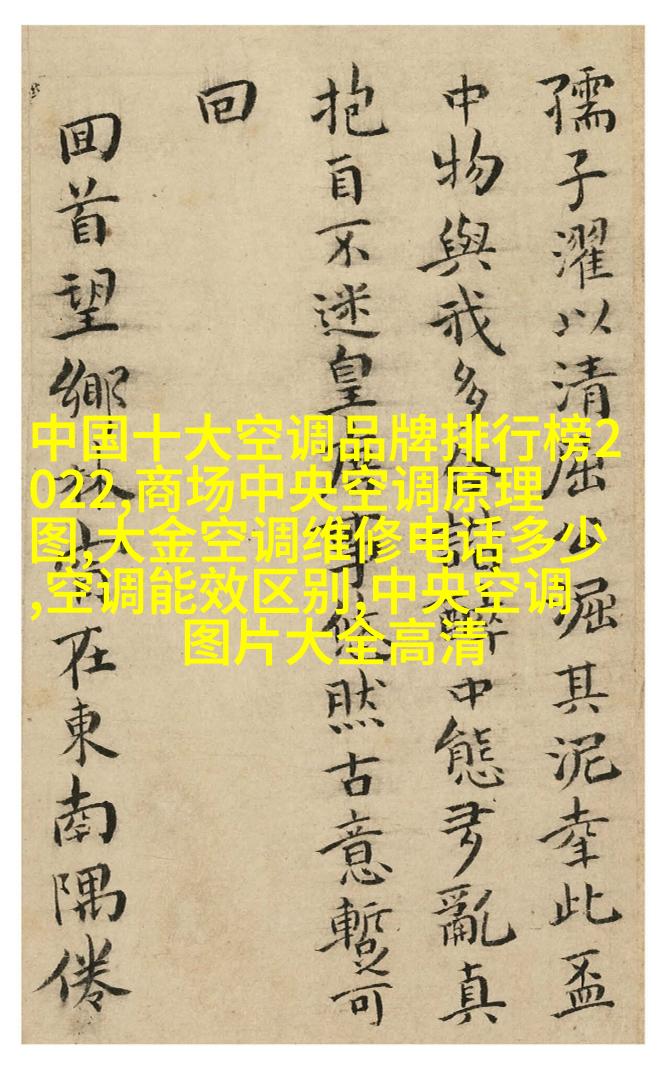 中国十大空调品牌排行榜2
022,商场中央空调原理
图,大金空调维修电话多少
,空调能效区别,中央空调
图片大全高清
孺子濯以清屈公淈其泥幸此盃
中物與我多諧醉中態多亂真
抱自不迷皇事悠然古意暫可
回
囬首望鄉在東南隅倦